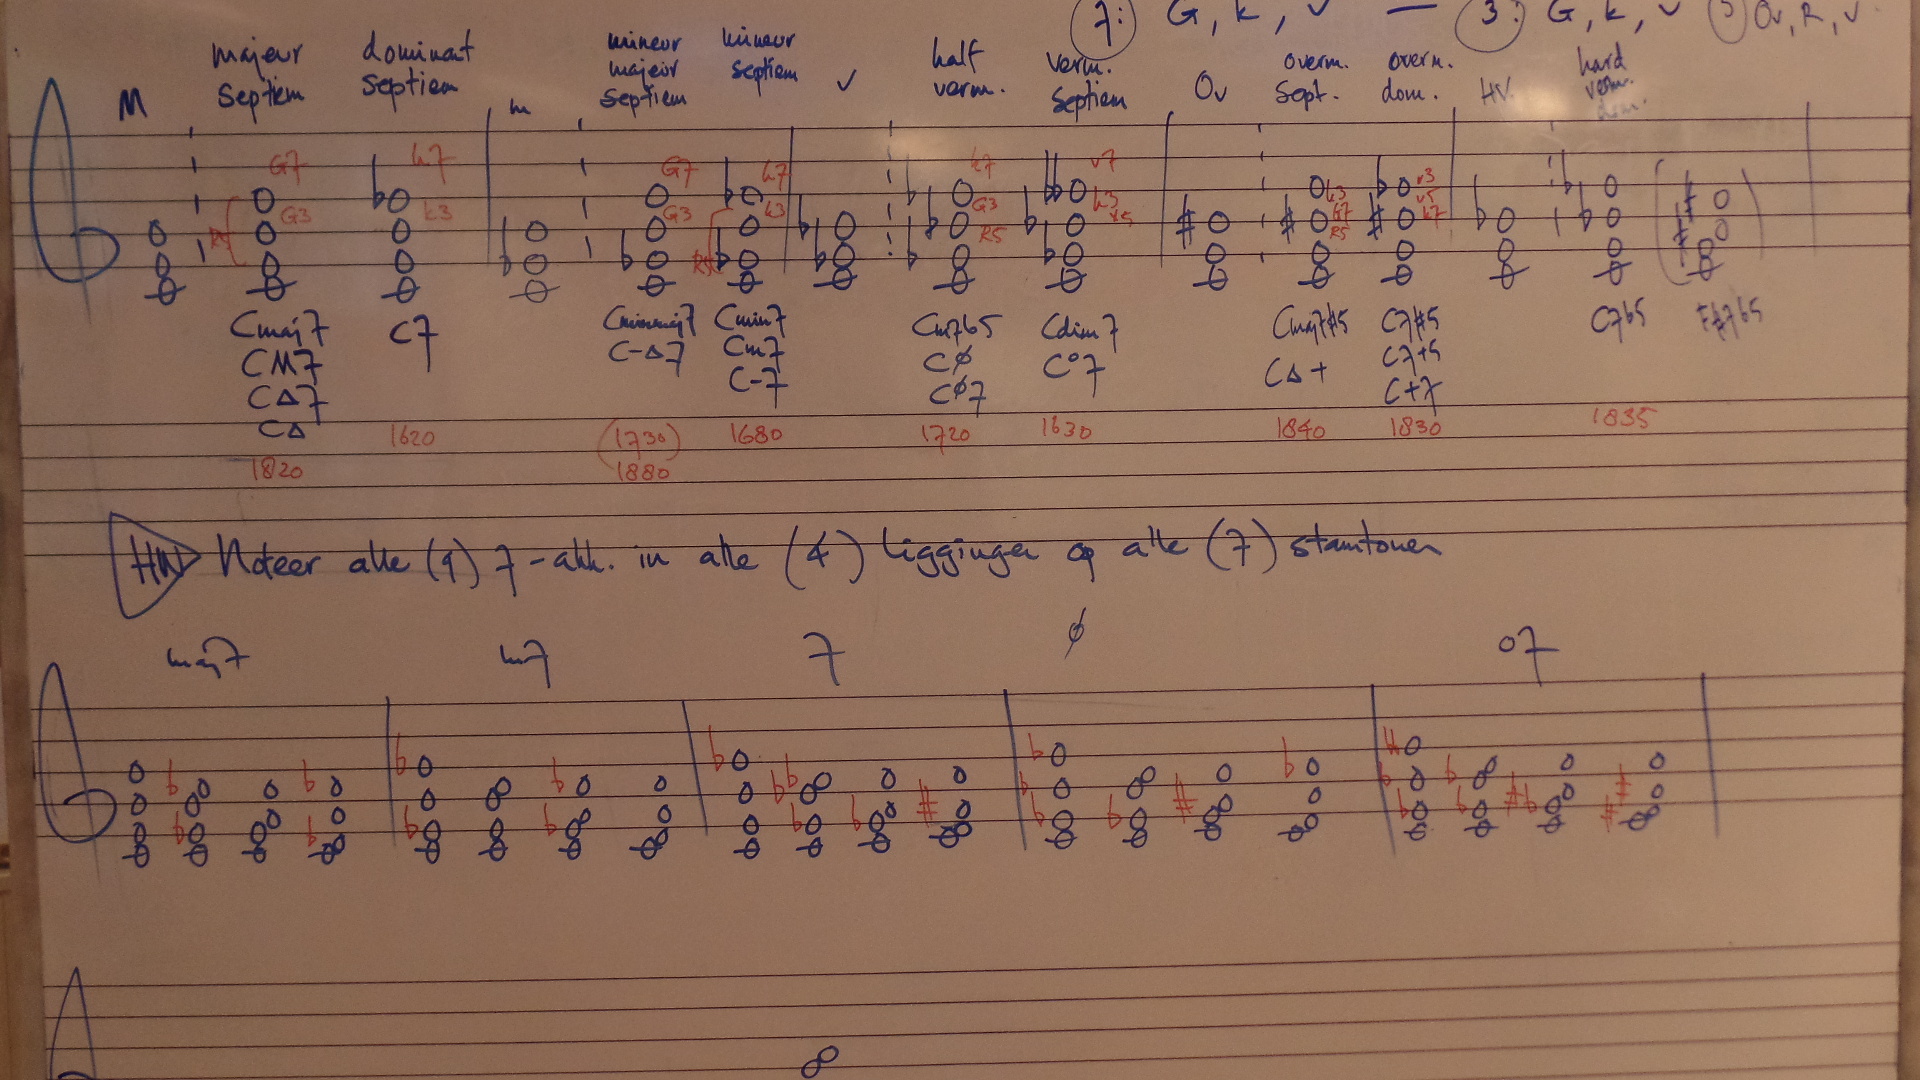 7: G, k, v — 3: G, k, v 5 Ov, R, v
M majeur septiem dominant septiem m mineur majeur septiem mineur septiem v half verm. verm. septiem Ov overm. sept. overm. dom. HV. hard verm. dom.
G7 k7 G7 k7 k7 v7
G3 k3 G3 k3 G3 k3 k3 v3
R5 R5 R5 v5 G7 R5 v5 k7
Cmaj7 C7 Cminmaj7 Cmin7 Cm7b5 Cdim7 Cmaj7#5 C7#5 C7b5 F#7b5
CM7 C-Δ7 Cm7 CØ C°7 CΔ+ C7+5
CΔ7 C-7 CØ7 C+7
CΔ
1620 (1730) 1680 1720 1630 1840 1830 1835
1820 1880
HW Noteer alle (9) 7-akk. in alle (4) liggingen op alle (7) stamtonen
maj7 m7 7 ø o7